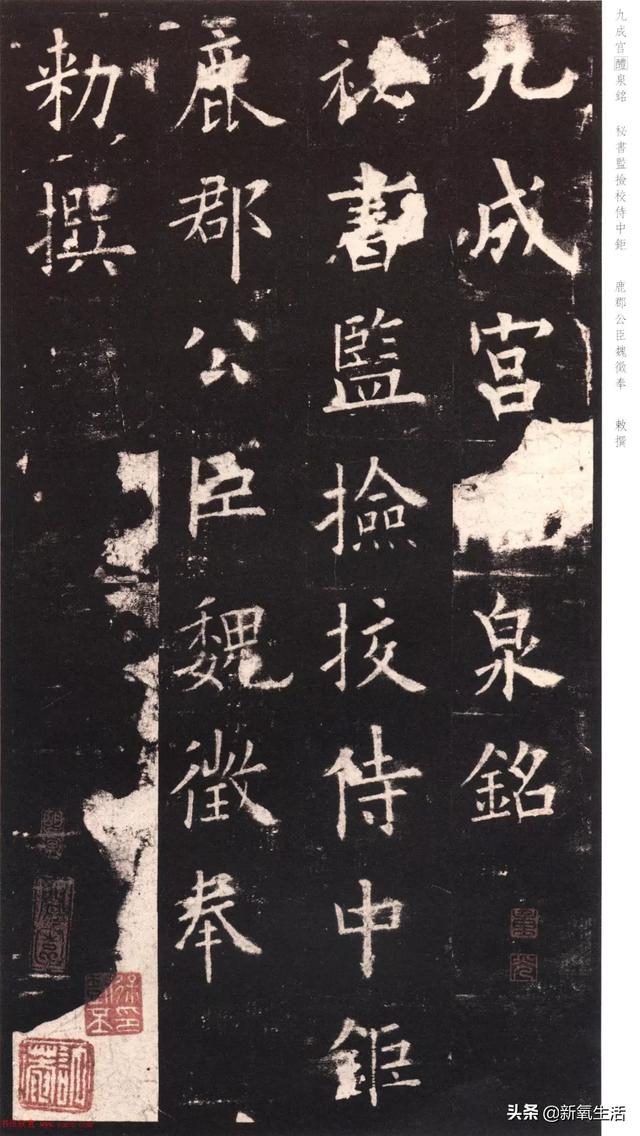 九成宫醴泉銘 秘書監撿校侍中鉅 鹿郡公臣魏徵奉 敕撰
九成宮泉銘
祕書監撿挍侍中鉅
鹿郡公臣魏徵奉
勑撰
头条 @新氧生活